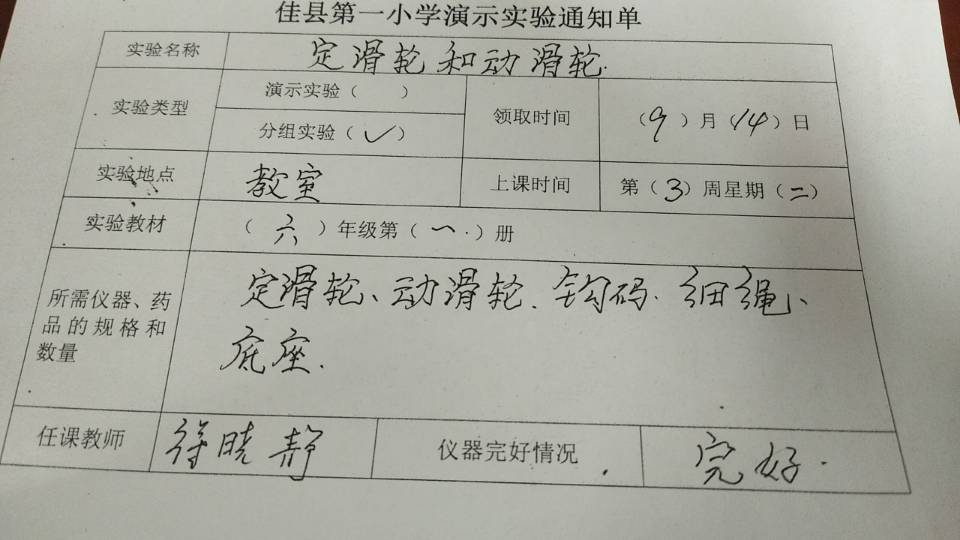 佳县第一小学演示实验通知单
实验名称 定滑轮和动滑轮.
实验类型 演示实验（ ） 领取时间 （9）月（14）日
分组实验（✓）
实验地点 教室 上课时间 第（3）周星期（二）
实验教材 （六）年级第（一.）册
所需仪器、药品的规格和数量 定滑轮、动滑轮、钩码、细绳、
底座.
任课教师 晓静 仪器完好情况 完好.